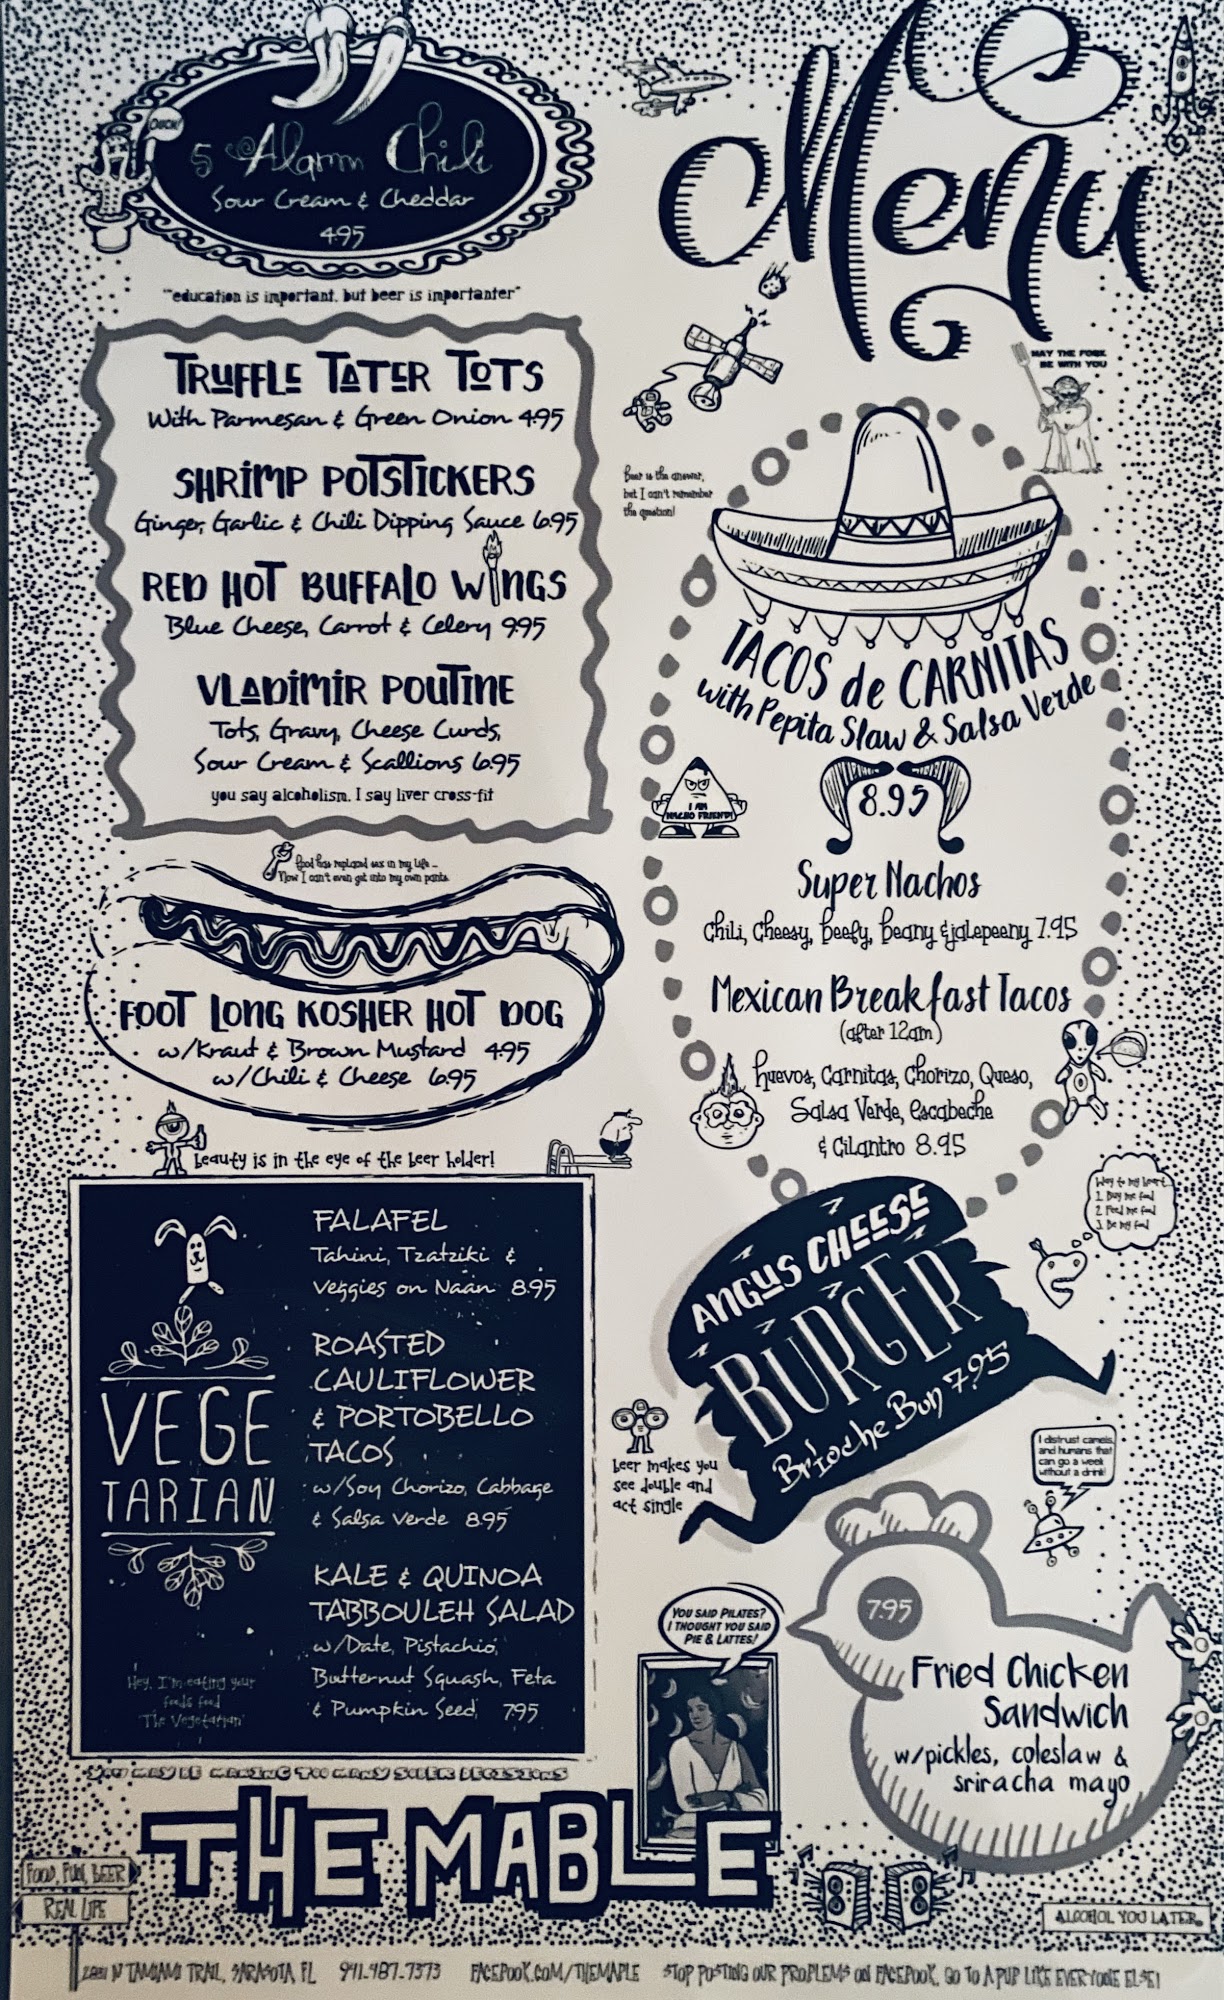 OUCH!
5 Alarm Chili
Sour Cream & Cheddar
4.95
"education is important, but beer is importanter"
TRUFFLE TATER TOTS
With Parmesan & Green Onion 4.95
SHRIMP POTSTICKERS
Ginger, Garlic & Chili Dipping Sauce 6.95
RED HOT BUFFALO WINGS
Blue Cheese, Carrot & Celery 9.95
VLADIMIR POUTINE
Tots, Gravy, Cheese Curds,
Sour Cream & Scallions 6.95
you say alcoholism, I say liver cross-fit
food has replaced sex in my life ...
Now I can't even get into my own pants.
FOOT LONG KOSHER HOT DOG
w/Kraut & Brown Mustard 4.95
w/Chili & Cheese 6.95
beauty is in the eye of the beer holder!
VEGE
TARIAN
FALAFEL
Tahini, Tzatziki &
Veggies on Naan 8.95
ROASTED
CAULIFLOWER
& PORTOBELLO
TACOS
w/Soy Chorizo, Cabbage
& Salsa Verde 8.95
KALE & QUINOA
TABBOULEH SALAD
w/Date, Pistachio,
Butternut Squash, Feta
& Pumpkin Seed 7.95
Hey, I'm eating your
foods food
"The Vegetarian"
YOU MAY BE MAKING TOO MANY SOBER DECISIONS
THE MABLE
FOOD, FUN, BEER
REAL LIFE
Menu
MAY THE FORK
BE WITH YOU
Beer is the answer,
but I can't remember
the question!
TACOS de CARNITAS
with Pepita Slaw & Salsa Verde
8.95
I AM
NACHO FRIEND!
Super Nachos
Chili, Cheesy, Beefy, Beany & jalepeeny 7.95
Mexican Breakfast Tacos
(after 12am)
Huevos, Carnitas, Chorizo, Queso,
Salsa Verde, escabeche
& Cilantro 8.95
Way to my heart
1. Buy me food
2. Feed me food
3. Be my food
ANGUS CHEESE
BURGER
Brioche Bun 7.95
beer makes you
see double and
act single
I distrust camels,
and humans that
can go a week
without a drink!
YOU SAID PILATES?
I THOUGHT YOU SAID
PIE & LATTES!
7.95
Fried Chicken
Sandwich
w/pickles, coleslaw &
sriracha mayo
ALCOHOL YOU LATER.
N TAMIAMI TRAIL, SARASOTA, FL 941-487-7373 FACEBOOK.COM/THEMABLE STOP POSTING OUR PROBLEMS ON FACEBOOK, GO TO A PUB LIKE EVERYONE ELSE!